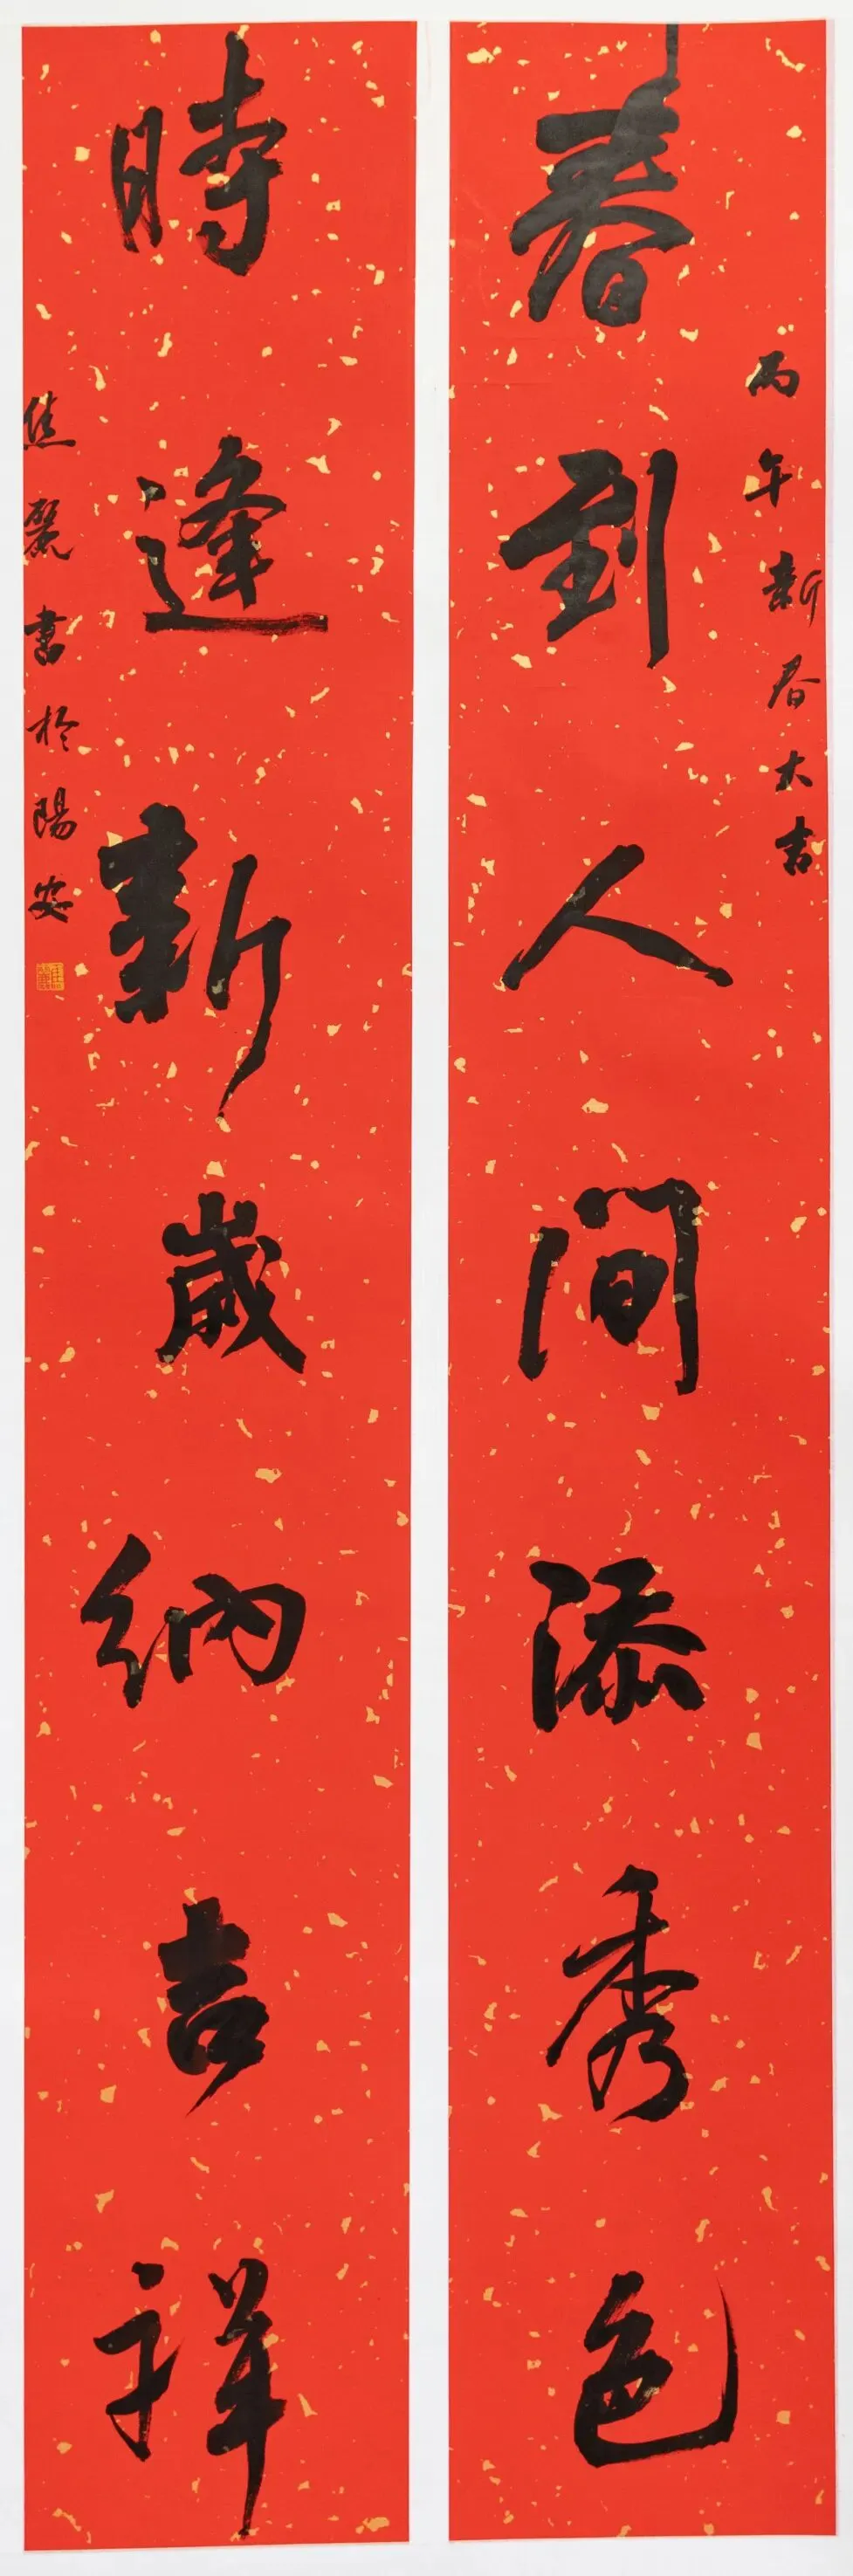 丙午新春大吉
春到人间添秀色
時逢新歲纳吉祥
焦麗書於陽安